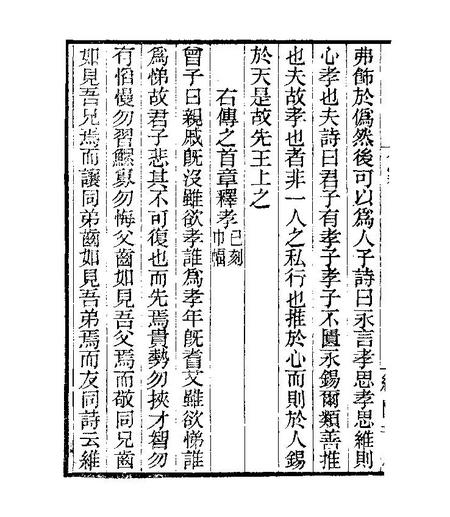 弗飾於僞然後可以爲人子詩曰永言孝思孝思維則
心孝也夫詩曰君子有孝子孝子不匱永錫爾類善推
也夫故孝也者非一人之私行也推於心而則於人錫
於天是故先王上之
右傳之首章釋孝已刻巾幅
曾子曰親戚旣沒雖欲孝誰爲孝年旣耆艾雖欲悌誰
爲悌故君子悲其不可復也而先焉貴勢勿挾才智勿
有惰慢勿習鰥寡勿侮父齒如見吾父焉而敬同兄齒
如見吾兄焉而讓同弟齒如見吾弟焉而友同詩云維